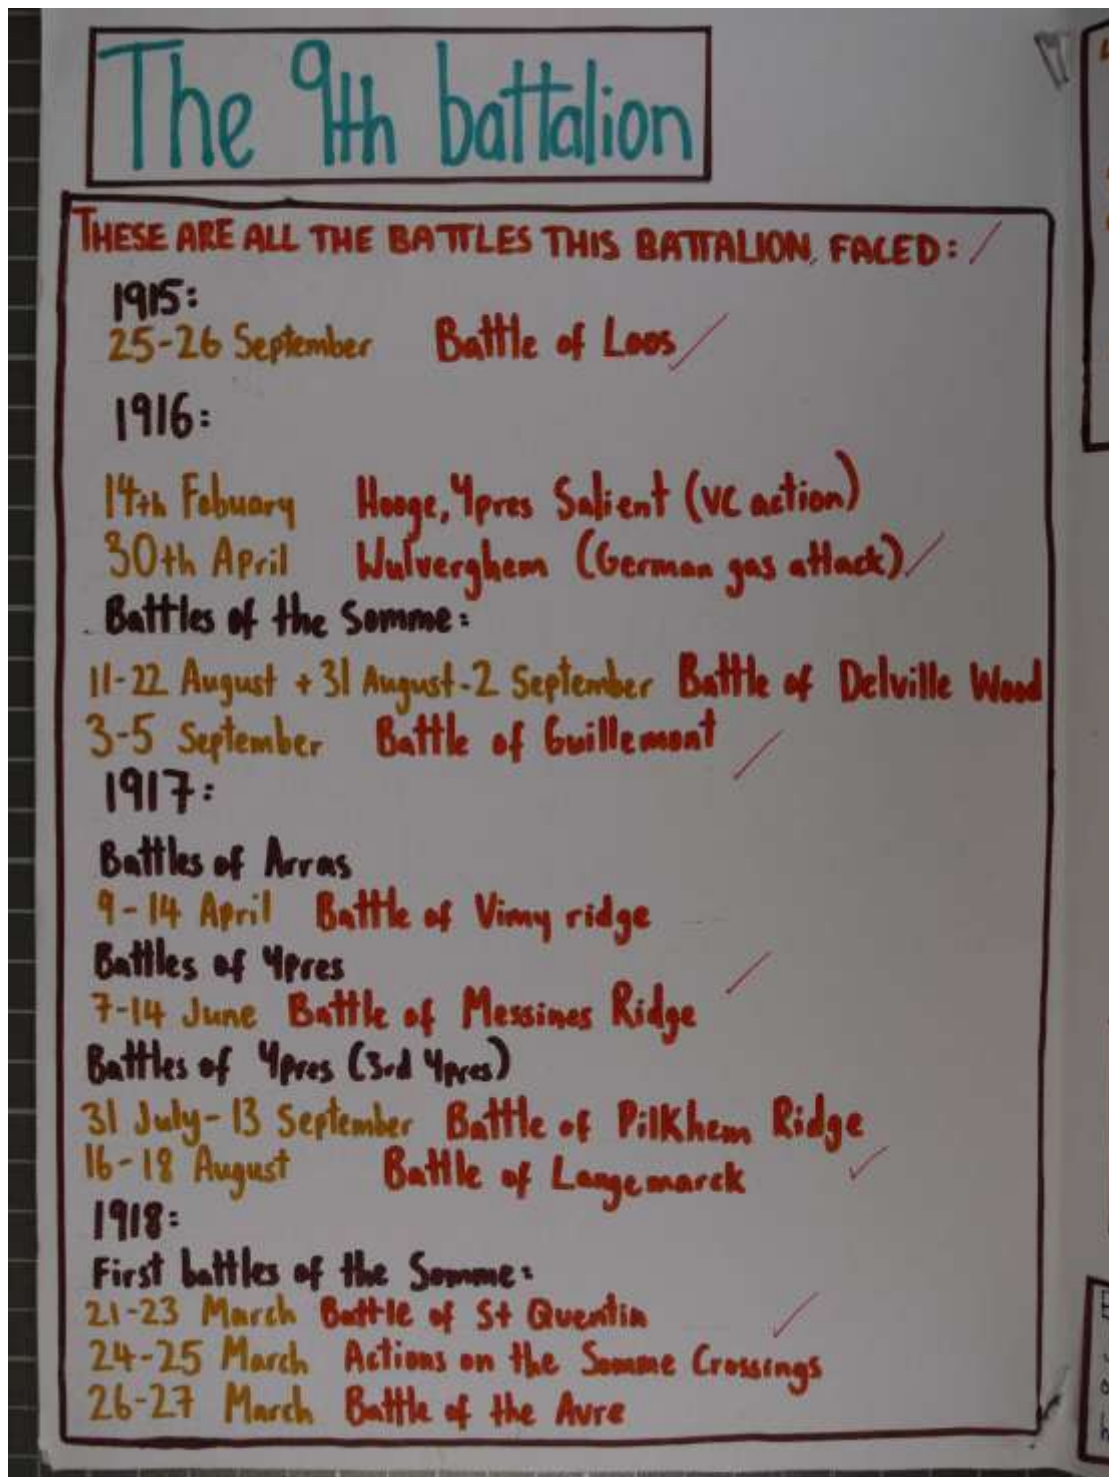 The 9th battalion
THESE ARE ALL THE BATTLES THIS BATTALION FACED:
1915:
25-26 September Battle of Loos
1916:
14th Febuary Hooge, Ypres Salient (VC action)
30th April Wulverghem (German gas attack)
Battles of the Somme:
11-22 August + 31 August-2 September Battle of Delville Wood
3-5 September Battle of Guillemont
1917:
Battles of Arras
9-14 April Battle of Vimy ridge
Battles of Ypres
7-14 June Battle of Messines Ridge
Battles of Ypres (3rd Ypres)
31 July-13 September Battle of Pilkhem Ridge
16-18 August Battle of Langemarck
1918:
First battles of the Somme:
21-23 March Battle of St Quentin
24-25 March Actions on the Somme Crossings
26-27 March Battle of the Avre